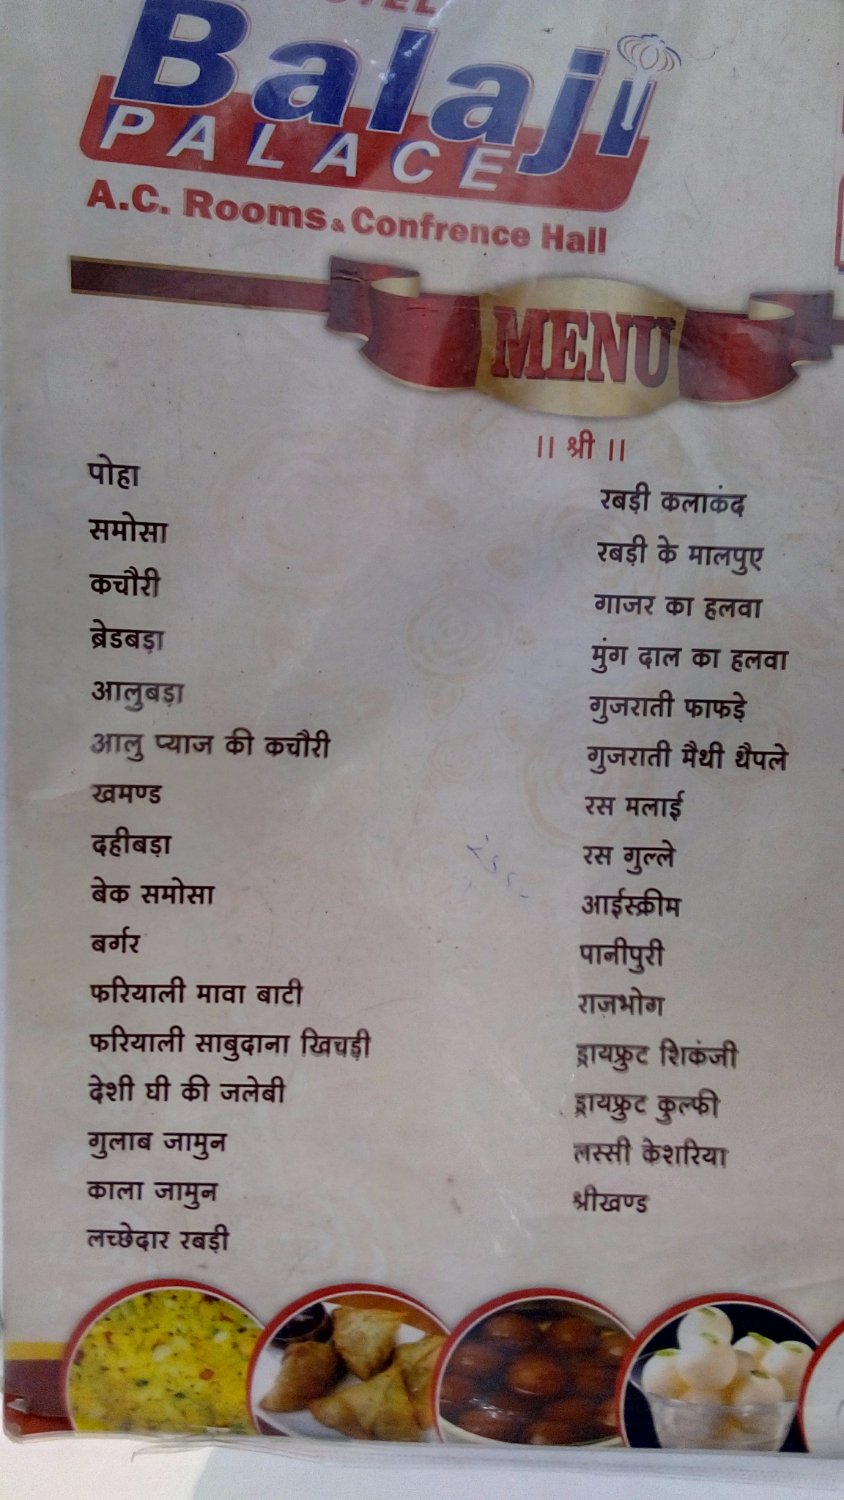 HOTEL
Balaji
PALACE
A.C. Rooms & Confrence Hall
MENU
|| श्री ||
पोहा
समोसा
कचौरी
ब्रेडबड़ा
आलुबड़ा
आलु प्याज की कचौरी
खमण्ड
दहीबड़ा
बेक समोसा
बर्गर
फरियाली मावा बाटी
फरियाली साबुदाना खिचड़ी
देशी घी की जलेबी
गुलाब जामुन
काला जामुन
लच्छेदार रबड़ी
रबड़ी कलाकंद
रबड़ी के मालपुए
गाजर का हलवा
मुंग दाल का हलवा
गुजराती फाफड़े
गुजराती मैथी थैपले
रस मलाई
रस गुल्ले
आईस्क्रीम
पानीपुरी
राजभोग
ड्रायफ्रुट शिकंजी
ड्रायफ्रुट कुल्फी
लस्सी केशरिया
श्रीखण्ड